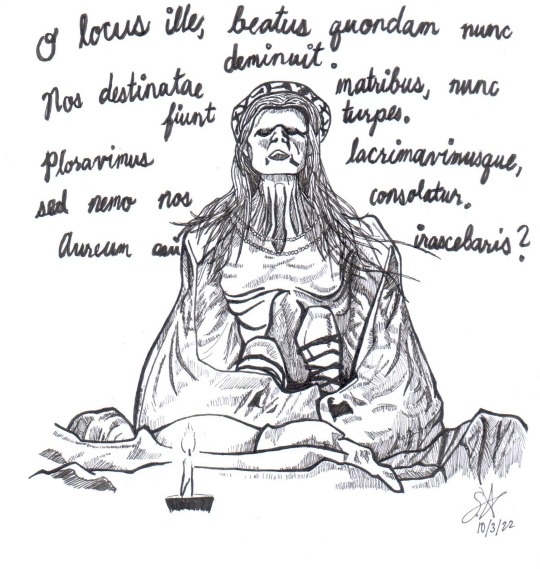 O locus ille, beatus quondam nunc
deminuit.
Nos destinatae matribus, nunc
fiunt turpes.
Ploravimus lacrimavimusque,
sed nemo nos consolatur.
Aureum irascebaris?
10/3/22